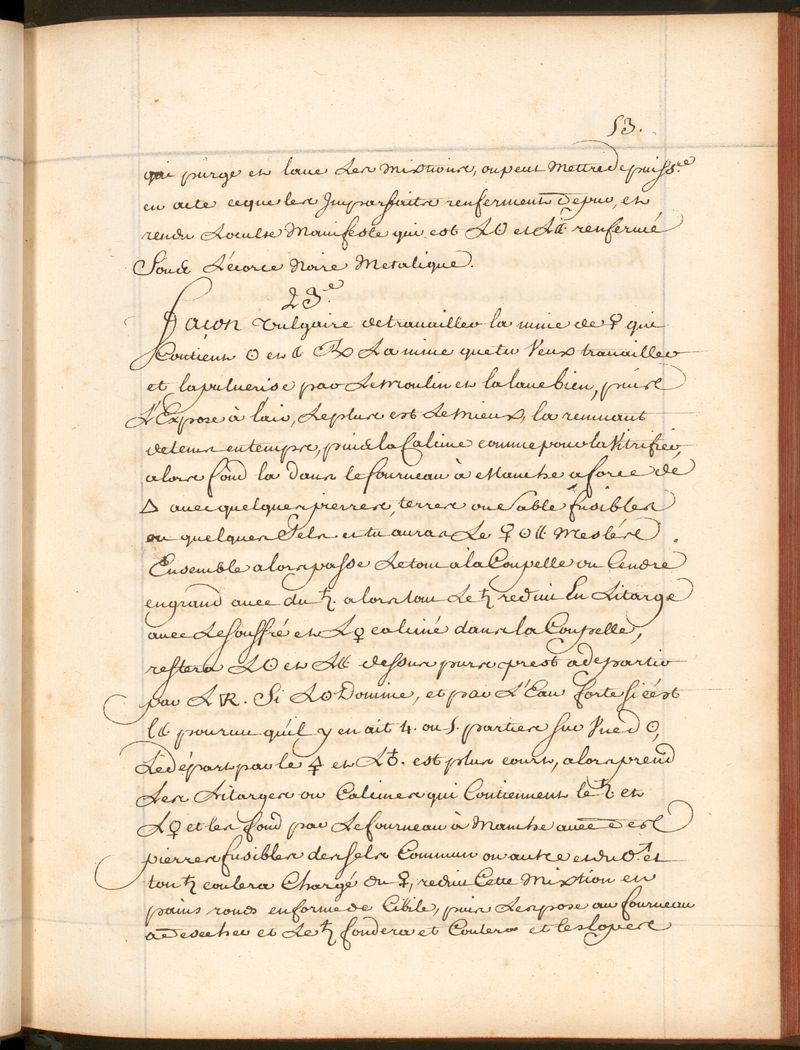 53.
qui purge et lave les mixtions, on peut mettre de puiss.ce
en acte ce que les Imparfaits renferment de pur, et
rendre L'oculte Manifeste qui est L☉ et L☾ renfermé
Sous L'écorce Noire Metalique.
23.e
Facon vulgaire de travailler la mine de ♀ qui
Contient ☉ et ☾ ℞ La mine que tu veux travailler
et la pulverise par Le Moulin et la lave bien, puis
L'Expose à l'air, Le plus est Le mieux, la remuant
de tems en temps, puis la Calcine comme pour la Vitrifier,
alors fond la dans le fourneau à Manche a force de
△ avec quelques pierres, terres ou Sable fusibles
ou quelques Sels et tu auras Le ♀ ☉ ☾ Meslés
Ensemble alors passe Le tout à la Coupelle ou Cendrée
en grand avec du ♄. alors tout Le ♄ reduit En Litarge
avec Le Souffre et L♀ calciné dans la Coupelle,
restera L☉ et L☾ dessus purs prest a departir
par L'▽R. Si L☉ Domine, et par L'Eau forte si c'est
l☾ pourvu qu'il y en ait 4. ou 5. parties sur Une d ☉,
Le départ par le 🜍 et L♁. est plus court, alors prend
Les Litarges ou Calcines qui Contiennent le ♄ et
L♀ et les fond par Le fourneau à Manche avec des
pierres fusibles des sels Commun ou autre et du ♂. et
ton ♄ coulera Chargé du ♀, reduit Cette Mixtion en
pains ronds en forme de Cible, puis Les pose au fourneau
a dessecher et Le ♄ fondera et Coulera et les Loupes